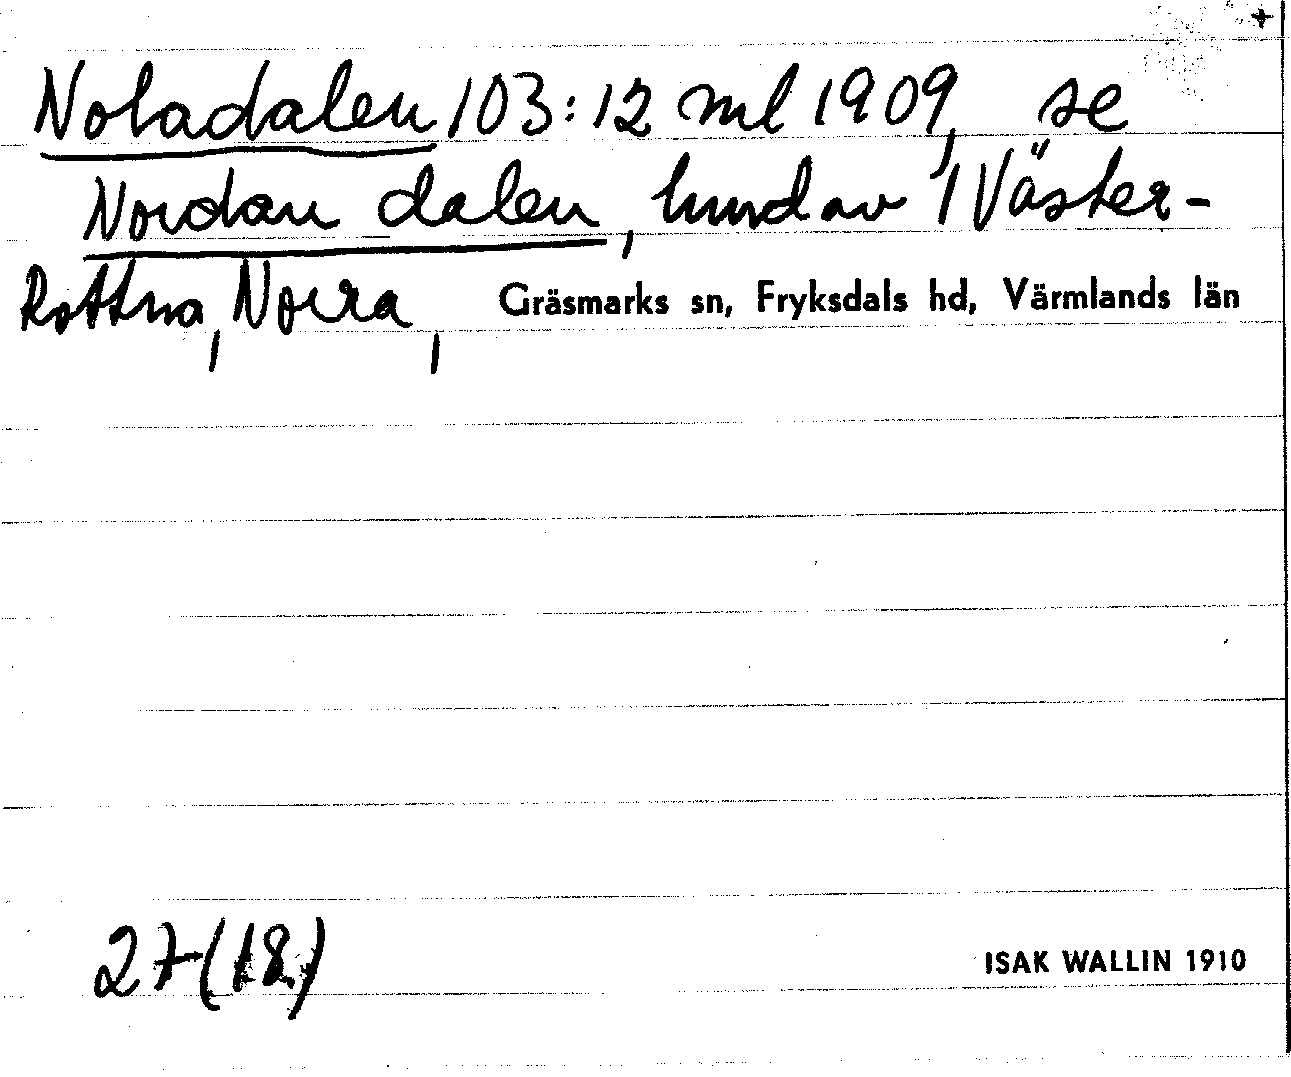 +
Noladalen 103:12 ml 1909, se
Nordan dalen, hmd av 1 Väster-
Rottna, Norra, Gräsmarks sn, Fryksdals hd, Värmlands län
27(18)
ISAK WALLIN 1910